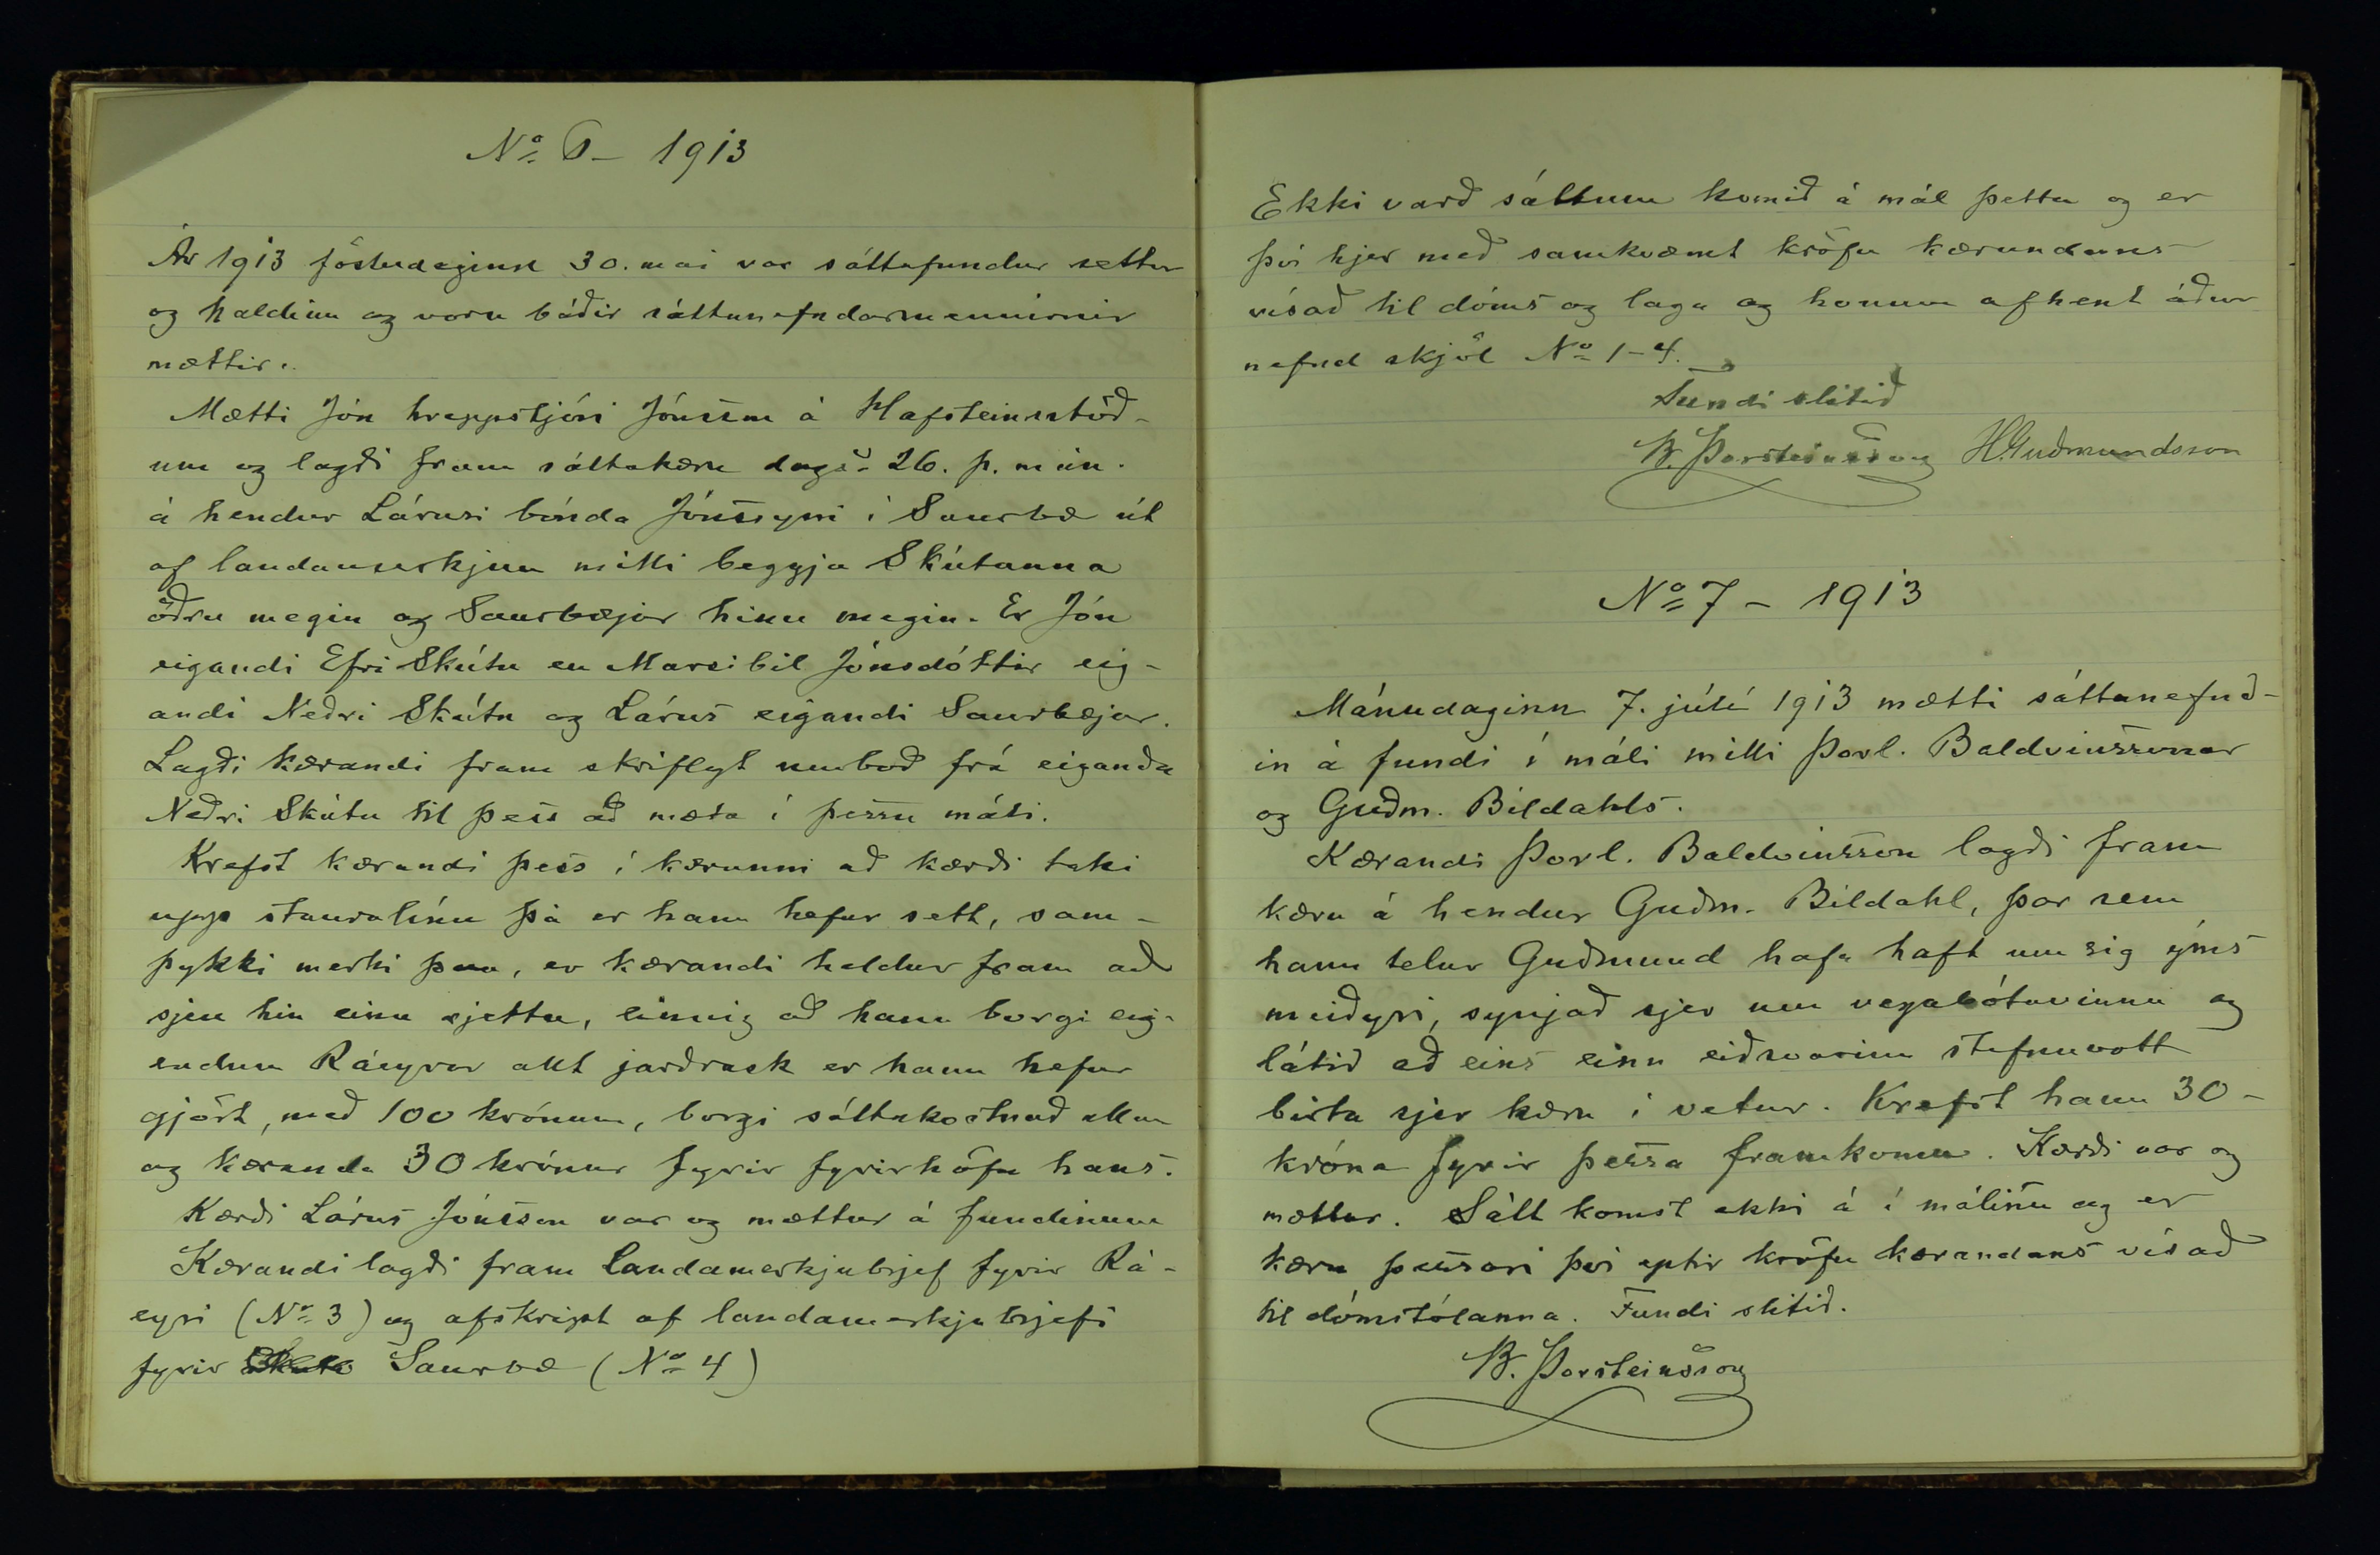 No 6 - 1913
Ár 1913 föstudaginn 30. mai var sáttafundur settur
og haldinn og voru báðir sáttanefndarmennirnir
mættir.
Mætti Jón hreppstjóri Jónsson á Hafsteinsstöð-
um og lagði fram sáttakæru dags. 26. þ. mán.
á hendur Lárusi bónda Jónssyni í Saurbæ út
af landamerkjum milli beggja Skútanna
öðru megin og Saurbæjar hinu megin. Er Jón
eigandi Efri Skútu en Marsibil Jónsdóttir eig-
andi Neðri Skútu og Lárus eigandi Saurbæjar.
Lagði kærandi fram skriflegt umboð frá eiganda
Neðri Skútu til þess að mæta í þessu máli.
Krefst kærandi þess í kærunni að kærði taki
upp stauralínu þá er hann hefur sett, sam-
þykki merki þau, er kærandi heldur fram að
sjeu hin einu rjettu, einnig að hann borgi eig-
endum Ráeyrar allt jarðrask er hann hefur
gjört, með 100 krónum, borgi sáttakostnað allan
og kæranda 30 krónur fyrir fyrirhöfn hans.
Kærði Lárus Jónsson var og mættur á fundinum
Kærandi lagði fram Landamerkjabrjef fyrir Rá-
eyri (No 3) og afskript af landamerkjabrjefi
fyrir Saurbæ (No 4)
Ekki varð sáttum komið á mál þetta og er
því hjer með samkvæmt kröfu kærandans
vísað til dóms og laga og honum afhent áður
nefnd skjöl No 1-4.
Fundi slitið
B. Þorsteinsson HGuðmundsson
No 7 - 1913
Mánudaginn 7. júlí 1913 mætti sáttanefnd-
in á fundi í máli milli Þorl. Baldvinssonar
og Guðm. Bíldahls.
Kærandi Þorl. Baldvinsson lagði fram
kæru á hendur Guðm. Bíldahl, þar sem
hann telur Guðmund hafa haft um sig ýms
meiðyri, synjað sjer um vegabótavinnu og
látið að eins einn eiðsvarinn stefnuvott
birta sjer kæru í vetur. Krefst hann 30-
króna fyrir þessa framkomu. Kærði var og
mættur. Sátt komst ekki á í málinu og er
kæru þessari því eptir kröfu kærandans vísað
til dómstólanna. Fundi slitið.
B. Þorsteinsson